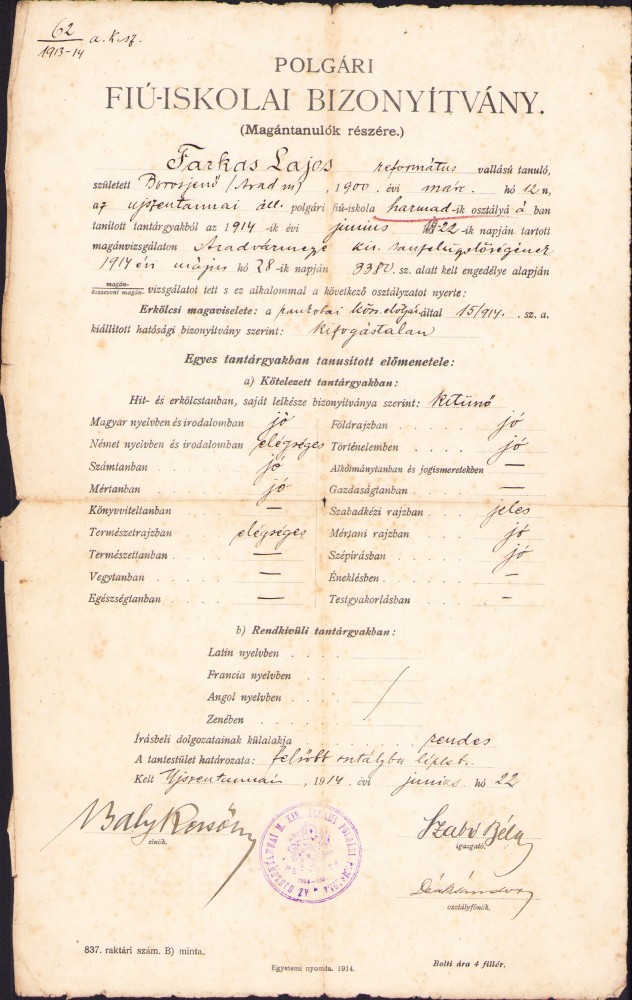 62
1913-14 a. k. sz.
POLGÁRI
FIÚ-ISKOLAI BIZONYÍTVÁNY.
(Magántanulók részére.)
Farkas Lajos református vallású tanuló,
született Borosjenő (Arad m) , 1900. évi márc. hó 12 n,
az ujszentannai áll. polgári fiú-iskola harmad-ik osztálya á ban
tanított tantárgyakból az 1914 -ik évi junius 22 -ik napján tartott
magánvizsgálaton Aradvármegye kir. tanfelügyelőségének
1914 évi május hó 28-ik napján 3380. sz. alatt kelt engedélye alapján
magán-
összevont magán- vizsgálatot tett s ez alkalommal a következő osztályzatot nyerte:
Erkölcsi magaviselete: a pankotai közs. előljár. által 15/914. sz. a.
kiállított hatósági bizonyítvány szerint: kifogástalan
Egyes tantárgyakban tanusított előmenetele:
a) Kötelezett tantárgyakban:
Hit- és erkölcstanban, saját lelkésze bizonyítványa szerint: kitünő
Magyar nyelvben és irodalomban jó
Német nyelvben és irodalomban elégséges
Számtanban jó
Mértanban jó
Könyvviteltanban —
Természetrajzban elégséges
Természettanban —
Vegytanban —
Egészségtanban —
Földrajzban jó
Történelemben jó
Alkotmánytanban és jogismeretekben —
Gazdaságtanban —
Szabadkézi rajzban jeles
Mértani rajzban jó
Szépírásban jó
Éneklésben —
Testgyakorlásban —
b) Rendkívüli tantárgyakban:
Latin nyelvben
Francia nyelvben
Angol nyelvben
Zenében
Írásbeli dolgozatainak külalakja rendes
A tantestület határozata: felsőbb osztályba léphet.
Kelt Ujszentannai , 1914. évi junius hó 22
elnök.
Szabó Béla
igazgató.
osztályfőnök.
AZ UJSZENTANNAI M. KIR. ÁLLAMI POLGÁRI FIUISKOLA
837. raktári szám. B) minta.
Egyetemi nyomda. 1914.
Bolti ára 4 fillér.